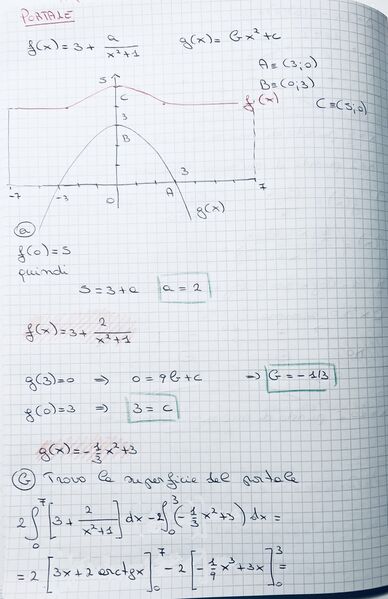 PORTALE
f(x) = 3 + a/(x²+1)    g(x) = bx² + c
A ≡ (3;0)
B ≡ (0;3)
C ≡ (5;0)
5
C
f(x)
3
B
-7 -3 0 A 3 7
g(x)
(a)
f(0) = 5
quindi
5 = 3 + a    a = 2
f(x) = 3 + 2/(x²+1)
g(3) = 0 ⇒ 0 = 9b + c ⇒ b = -1/3
g(0) = 3 ⇒ 3 = c
g(x) = -1/3 x² + 3
(b) Trovo la superficie del portale
2∫₀⁷ [3 + 2/(x²+1)] dx - 2∫₀³ (-1/3 x² + 3) dx =
= 2 [3x + 2 arctgx]₀⁷ - 2 [-1/9 x³ + 3x]₀³ =